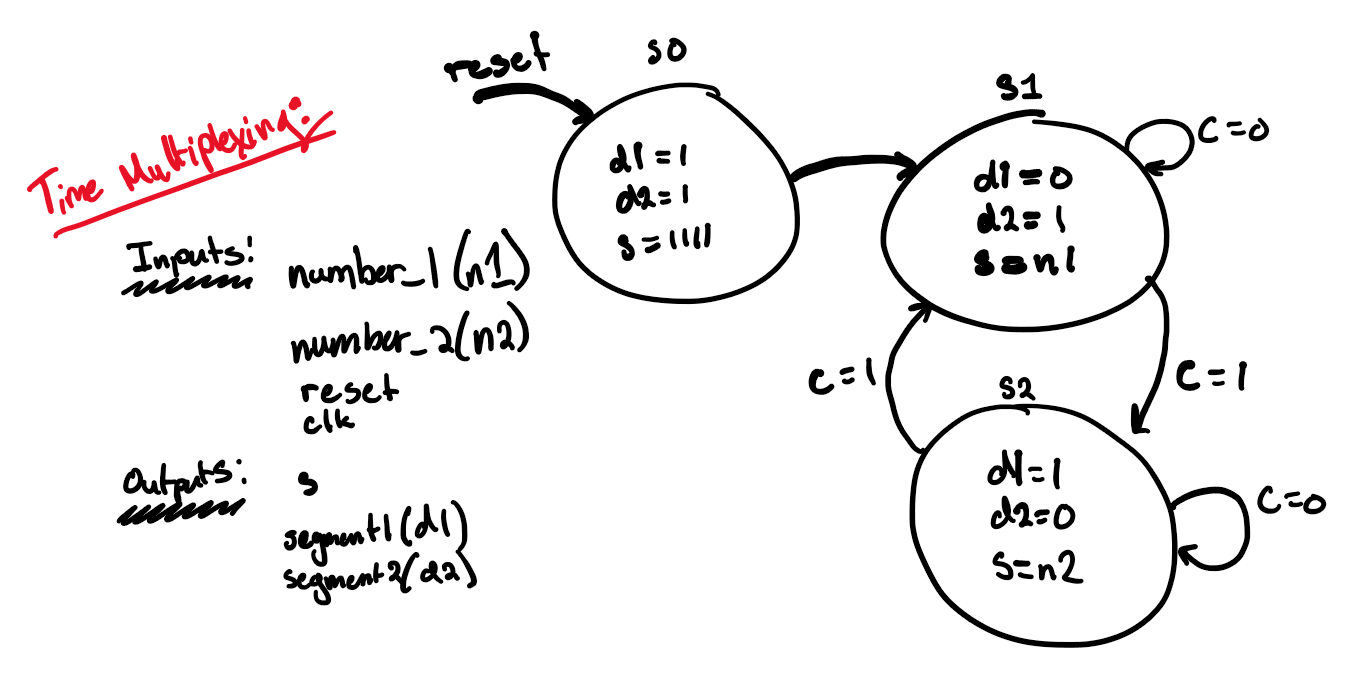 Time Multiplexing:
Inputs:
number_1 (n1)
number_2 (n2)
reset
clk
Outputs:
s
segment1 (d1)
segment2 (d2)
reset
s0
d1 = 1
d2 = 1
s = 1111
s1
d1 = 0
d2 = 1
s = n1
C = 0
C = 1
C = 1
s2
d1 = 1
d2 = 0
s = n2
C = 0